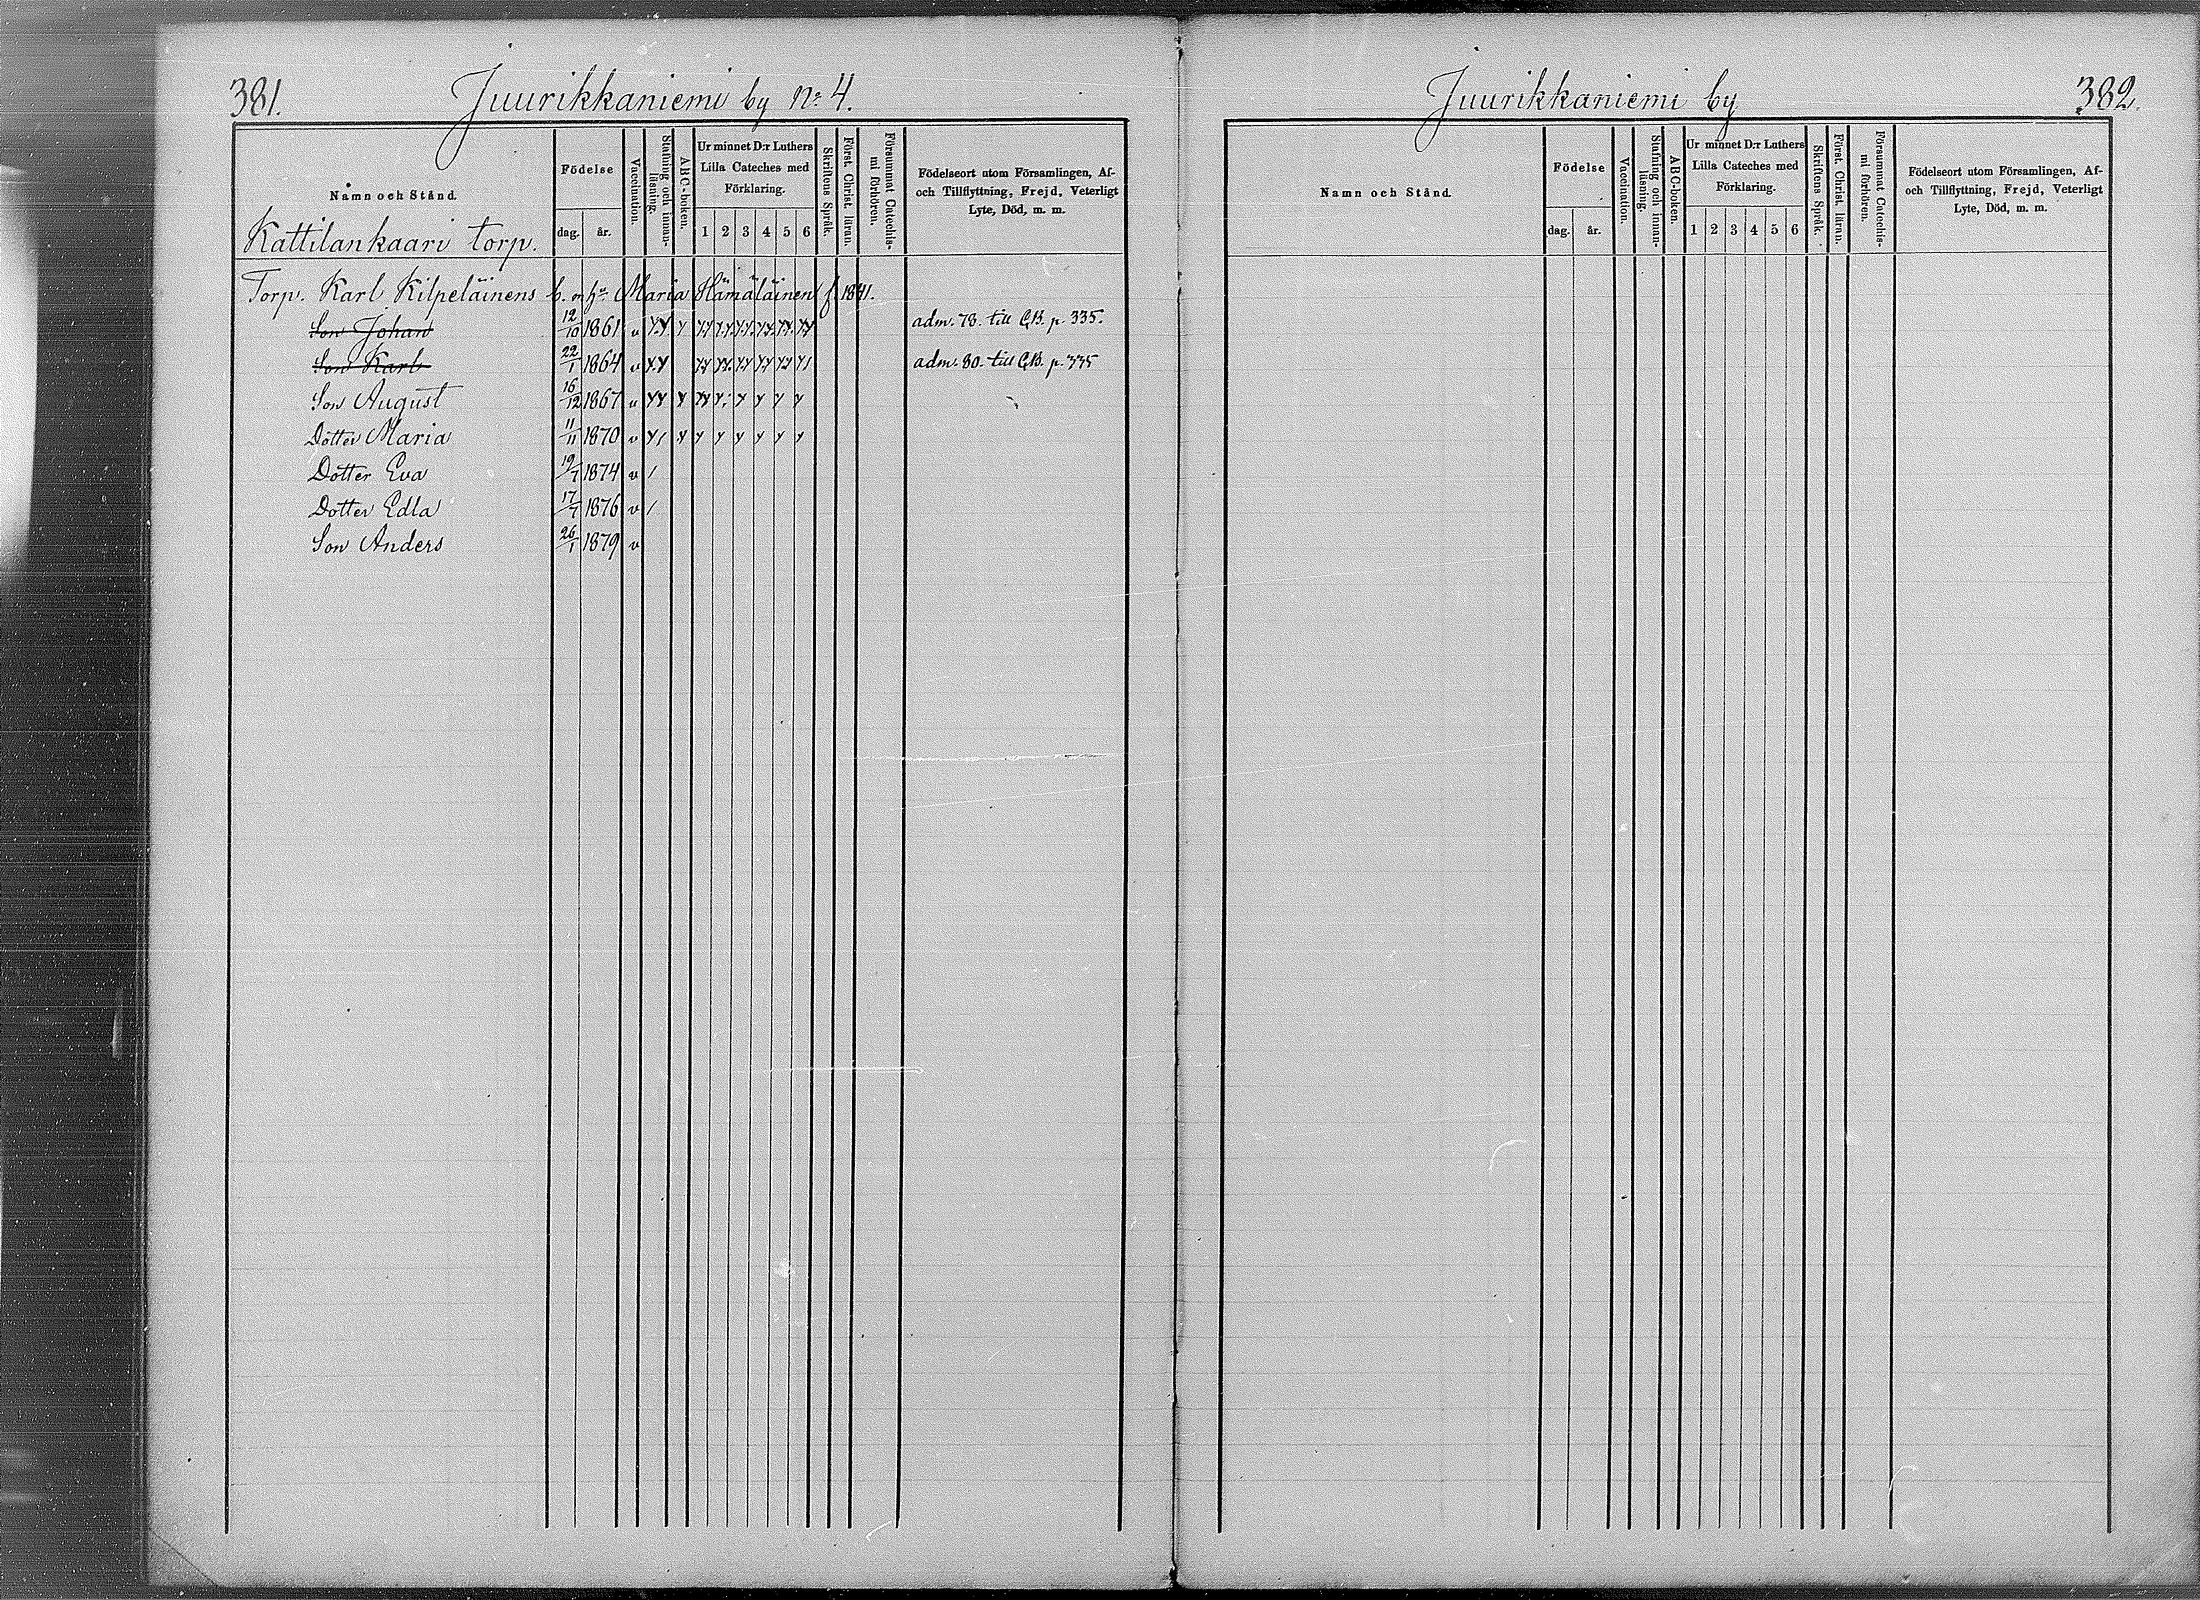 381. Juurikkaniemi by No 4.
Namn och Stånd.
Födelse
dag.
år.
Vaccination.
Stafning och innan-
läsning.
ABC-boken.
Ur minnet D:r Luthers
Lilla Cateches med
Förklaring.
1 2 3 4 5 6
Skriftens Språk.
Först. Christ. läran.
Försummat Catechis-
mi förhören.
Födelseort utom Församlingen, Af-
och Tillflyttning, Frejd, Veterligt
Lyte, Död, m. m.
Kattilankaari torp.
Torp. Karl Kilpeläinens b. o. hu Maria Hämäläinen f 1841.
Son Johan 12/10 1861 v adm. 78. till C.B. p. 335.
Son Karl 22/1 1864 v adm. 80. till C.B. p. 335
Son August 16/12 1867 v
Dotter Maria 11/11 1870 v
Dotter Eva 19/7 1874 v /
Dotter Edla 17/7 1876 v /
Son Anders 26/1 1879 v
Juurikkaniemi by 382.
Namn och Stånd.
Födelse
dag.
år.
Vaccination.
Stafning och innan-
läsning.
ABC-boken.
Ur minnet D:r Luthers
Lilla Cateches med
Förklaring.
1 2 3 4 5 6
Skriftens Språk.
Först. Christ. läran.
Försummat Catechis-
mi förhören.
Födelseort utom Församlingen, Af-
och Tillflyttning, Frejd, Veterligt
Lyte, Död, m. m.